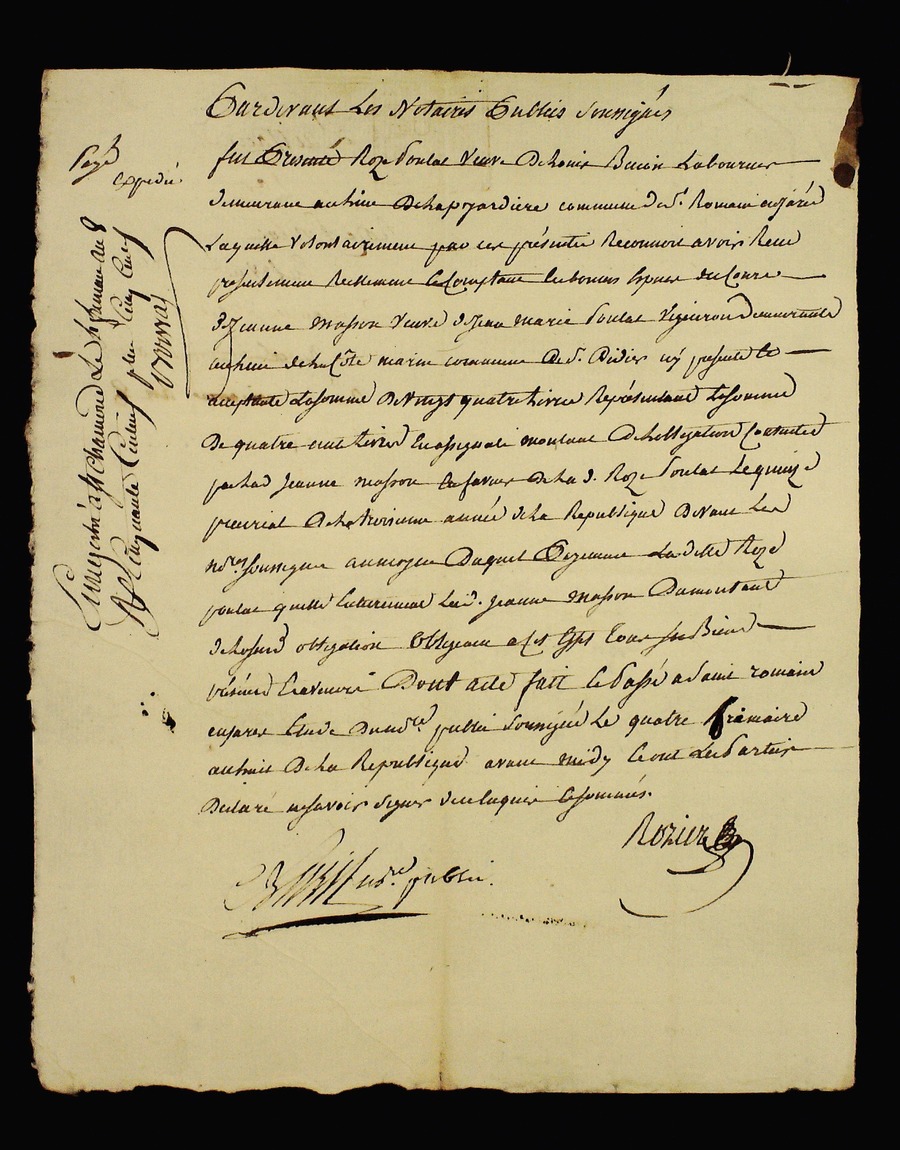 Pardevant Les Notaires Publics Soussignés
fut Présenté Roze Poulat Veuve De Louis Buisson Laboureur
demeurant au lieu De commune de St. Romain en jarêd
Laquelle Volontairement par ces présentes Reconnoit avoir Receu
présentement Réellement Comptant En bonnes Espèces de Cours
de Jeanne Masson Veuve de Jean Marie Poulat Vigneron Demeurante
au lieu de la Côte marin commune De St. Didier icy présente &
acceptante La somme De vingt quatre Livres Représentant La somme
De quatre cent Livres En assignats montant De Lobligation Contractée
par lad. Jeanne Masson En faveur De La d. Roze Poulat Le quinze
prairial De La troisieme année de La Republique Devant Les
nores. soussignés au moyen Duquel Payement La ditte Roze
poulat quitte Entierement Lad. Jeanne Masson Du montant
de La susd. obligation Obligeant a Ces Effets Tous ses Biens
présens & avenirs Dont acte fait & Passé a Saint romain
en jarez Etude Du nore. public Soussigné Le quatre frimaire
an huit De La Republique avant midy & ont Les Parties
Déclaré ne savoir Signer de ce Enquises & sommés.
Rozier
nore. public.
Payé
expedié
Enregistré à St Chamond Le frimaire an 8
R Cinquante Centimes plus Cinq Cent.